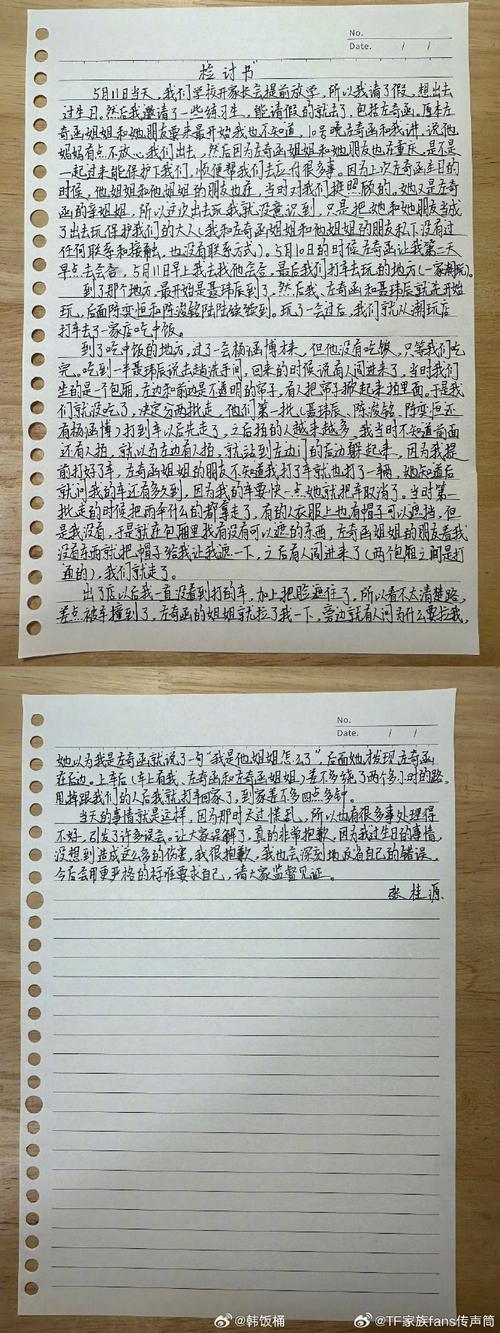 No.
Date. / /
检讨书
5月11日当天,我们学校开家长会提前放学,所以我请了假,想出去
过生日。然后我邀请了一些练习生,能请假的就去了,包括左奇函。原本左
奇函姐姐和她朋友要来最开始我也不知道,10号晚左奇函和我讲,说他
妈妈有点不放心我们出去,然后因为左奇函姐姐和她朋友也在重庆,是不是
一起过来能保护下我们,顺便帮我们去应付很多事。因为上次左奇函生日的
时候,他姐姐和他姐姐的朋友也在,当时对我们挺照顾的,她又是左奇
函的亲姐姐,所以这次出去玩我就没意识到,只是把她和她朋友当成
了出去玩保护我们的大人(我和左奇函姐姐和他姐姐的朋友私下没有过
任何联系和接触,也没有联系方式)。5月10日的时候左奇函让我第二天
早点去会合,5月11日早上我去找他会合,最后我们打车去玩的地方(一家潮玩)。
到了那个地方,最开始是聂玮辰到了,然后我、左奇函和聂玮辰就先开始
玩,后面陈奕恒和陈浚铭陆陆续续到。玩了一会过后,我们就从潮玩店
打车去了一家店吃中饭。
到了吃中饭的地方,过了一会杨涵博才来,但他没有吃饭,只等我们吃
完。吃到一半聂玮辰说出去趟洗手间,回来的时候说有人闯进来了,当时我们
坐的是一个包厢,左边和前边是不透明的帘子,有人把帘子掀起来拍里面。于是我
们就没吃了,决定分两批走,他们第一批(聂玮辰、陈浚铭、陈奕恒还
有杨涵博)打到车以后先走了,之后拍的人越来越多,我当时不知道前面
还有人拍,就以为左边有人拍,就站到左边门的后边躲起来,因为我提
前打好了车,左奇函姐姐的朋友不知道我打了车就也打了一辆,她知道后
就问我的车还有多久到,因为我的车要快一点她就把车取消了,当时第一
批走的时候把雨伞什么的都拿走了,有的人衣服上也有帽子可以遮挡,但
是我没有,于是就在包厢里找有没有可以遮的东西,左奇函姐姐的朋友看我
没有东西就把帽子给我让我遮一下,之后有人闯进来了(两个包厢之间是打
通的),我们就走了。
出了店以后我一直没看到打的车,加上把脸遮住了,所以看不太清楚路,
差点被车撞到了,左奇函的姐姐就拉了我一下,旁边就有人问为什么要拉我,
No.
Date. / /
她以为我是左奇函就说了一句“我是他姐姐怎么了”,后面她才发现左奇函
在后边。上车后(车上有我、左奇函和左奇函姐姐)差不多绕了两个多小时的路,
甩掉跟我们的人后我就打车回家了,到家差不多四点多钟。
当天的事情就是这样,因为那时太慌乱,所以也有很多事处理得
不好,引发了许多误会。让大家误解了,真的非常抱歉,因为我过生日的事情,
没想到造成这么多的伤害,我很抱歉,我也会深刻地反省自己的错误,
今后会用更严格的标准要求自己,请大家监督见证。
张桂源
@韩饭桶
@TF家族fans传声筒